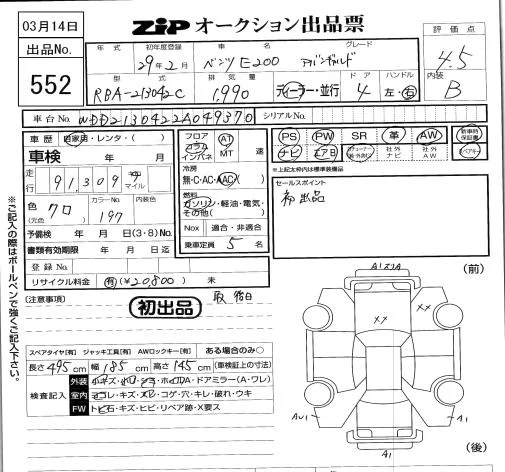 03月14日
ZIP オークション出品票
出品No.
552
評価点
4.5
内装
B
年式 初年度登録 車名 グレード
29年2月 ベンツE200 アバンギャルド
型式 排気量 ドア ハンドル
RBA-213042C 1,990 ディーラー・並行 4 左・右
車台No. WDD2130422A049370 シリアルNo.
車歴 自家用・レンタ・( )
車検 年 月
走行 91,309 km マイル
色(元色) カラーNo. 内装色
クロ 197
予備検 年 月 日(3・8)No.
書類有効期限 年 月 日迄
登録No.
リサイクル料金 有(¥20,800) 未
フロア コラム インパネ AT MT 速
冷房
無・C・AC・AAC( )
燃料
ガソリン・軽油・電気・その他( )
Nox 適合・非適合
乗車定員 5 名
PS PW SR 革 AW 新車時保証書
ナビ エアB 社外ナビ 社外AW
※上記太枠内は標準装備品
セールスポイント
初出品
(注意事項)
初出品
スペアタイヤ[有] ジャッキ工具[有] AWロックキー[有] ある場合のみ○
長さ495cm 幅185cm 高さ145cm (車検証上の寸法)
検査記入
外装 ドアミラー(A・ワレ)
室内 コゲ・穴・キレ・破れ・ウキ
FW トビ石・キズ・ヒビ・リペア跡・X要ス
※ご記入の際はボールペンで強くご記入下さい。
(前)
XX
XX
A1
A1
(後)